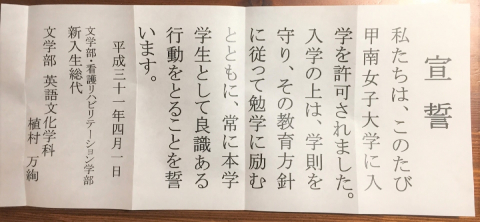 宣誓
私たちは、このたび
甲南女子大学に入
学を許可されました。
入学の上は、学則を
守り、その教育方針
に従って勉学に励む
とともに、常に本学
学生として良識ある
行動をとることを誓
います。
平成三十一年四月一日
文学部・看護リハビリテーション学部
新入生総代
文学部 英語文化学科
植村 万絢